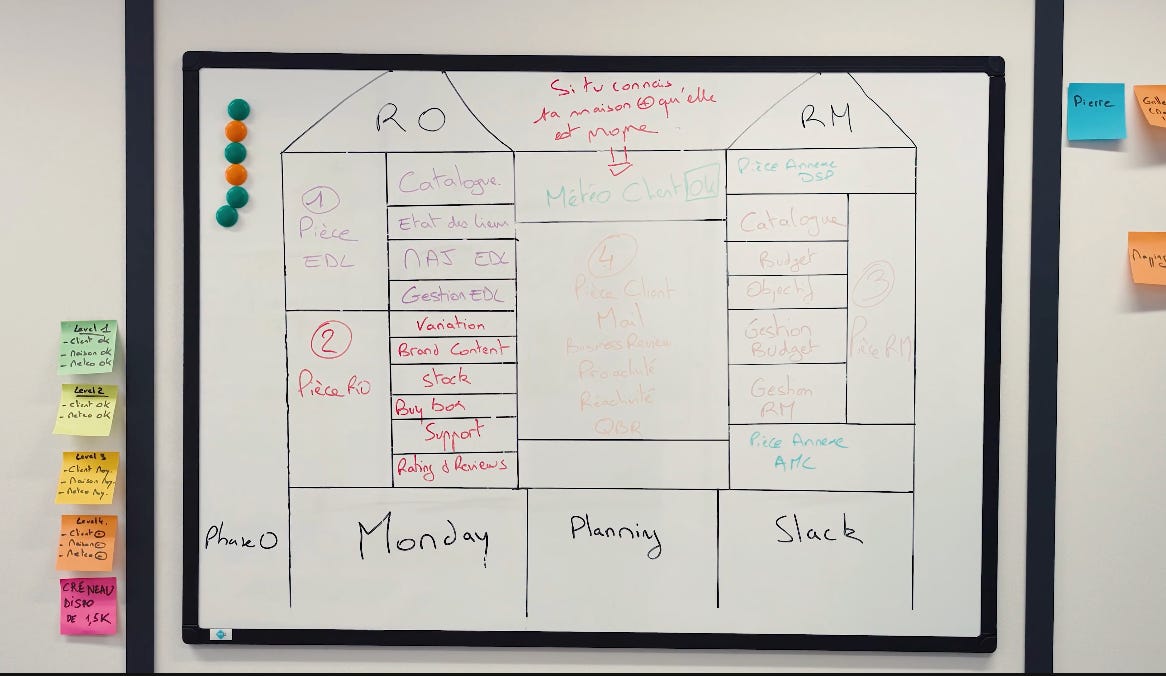 RO
Si tu connais
ta maison ⊕ qu'elle
est propre
RM
1
Pièce
EDL
Catalogue
Etat des lieux
MAJ EDL
Gestion EDL
2
Pièce RO
Variation
Brand Content
Stock
Buy box
Support
Rating & Reviews
Météo Client OK
4
Pièce Client
Mail
Business Review
Proactivité
Réactivité
QBR
Pièce Annexe
DSP
Catalogue
Budget
Objectif
Gestion
Budget
Gestion
RM
3
Pièce RM
Pièce Annexe
AMC
Phase 0
Monday
Planning
Slack
Level 1
- Client ok
- Maison ok
- Meteo ok
Level 2
- Client ok
- Meteo ok
Level 3
- Client Moy.
- Maison Moy.
- Meteo Moy.
Level 4.
- Client ⊖
- Maison ⊖
- Meteo ⊖
CRÉNEAU
DISPO
DE 1,5K
Pierre